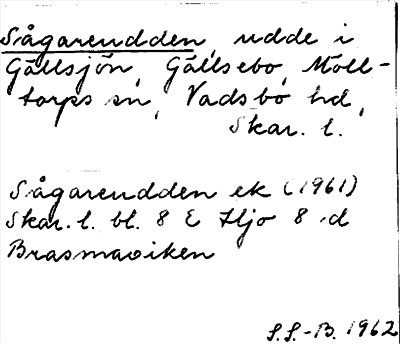 Sågareudden, udde i
Gällsjön, Gällsebo, Möll-
torps sn, Vadsbo hd,
Skar. l.
Sågareudden ek (1961)
Skar. l. bl. 8 E Hjo 8 d
Brasmaviken
S.S.-B. 1962